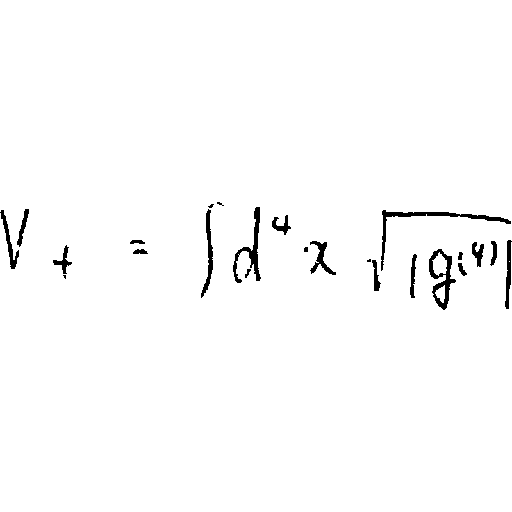 V_+ = ∫ d^4 x √|g^{(4)}|